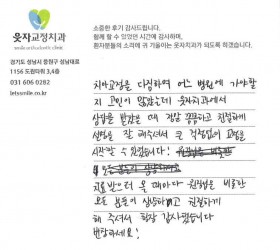 웃자교정치과
smile orthodontic clinic
경기도 성남시 중원구 성남대로
1156 도원타워 3,4층
031 606 0282
letyssmile.co.kr
소중한 후기 감사드립니다.
함께 할 수 있었던 시간에 감사하며,
환자분들의 소리에 귀 기울이는 웃자치과가 되도록 하겠습니다.
치아교정을 다짐하며 어느 병원에 가야할
지 고민이 많았는데 웃자치과에서
상담을 받았는데 정말 꼼꼼하고 친절하게
설명을 잘 해주셔서 큰 걱정없이 교정을
시작할 수 있었습니다!
치료받으러 올 때마다 원장님을 비롯한
모든 분들이 상냥하고 친절하게
해 주셔서 항상 감사했습니다
번창하세요!